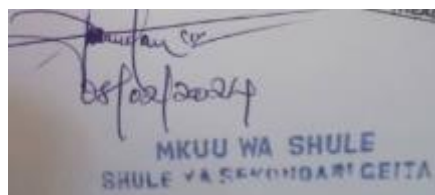 08/02/2024
MKUU WA SHULE
SHULE YA SEKONDARI GEITA